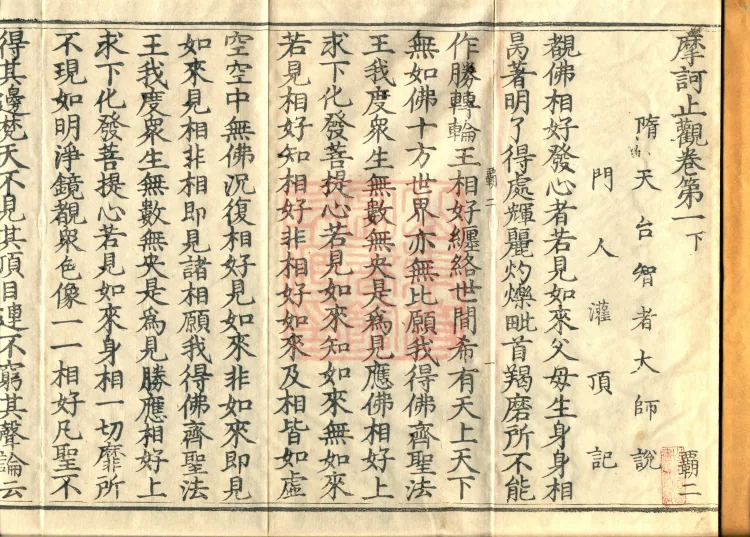 摩訶止觀卷第一下 覇二
隋天台智者大師說
門人灌頂記
觀佛相好發心者若見如來父母生身身相
昺著明了得處輝麗灼爍毗首羯磨所不能
覇二
作勝轉輪王相好纏絡世間希有天上天下
無如佛十方世界亦無比願我得佛齊聖法
王我度衆生無數無央是爲見應佛相好上
求下化發菩提心若見如來知如來無如來
若見相好知相好非相好如來及相皆如虛
空空中無佛沉復相好見如來非如來即見
如來見相非相即見諸相願我得佛齊聖法
王我度衆生無數無央是爲見勝應相好上
求下化發菩提心若見如來身相一切靡所
不現如明淨鏡覩衆色像一一相好凡聖不
得其邊梵天不見其頂目連不窮其聲論云